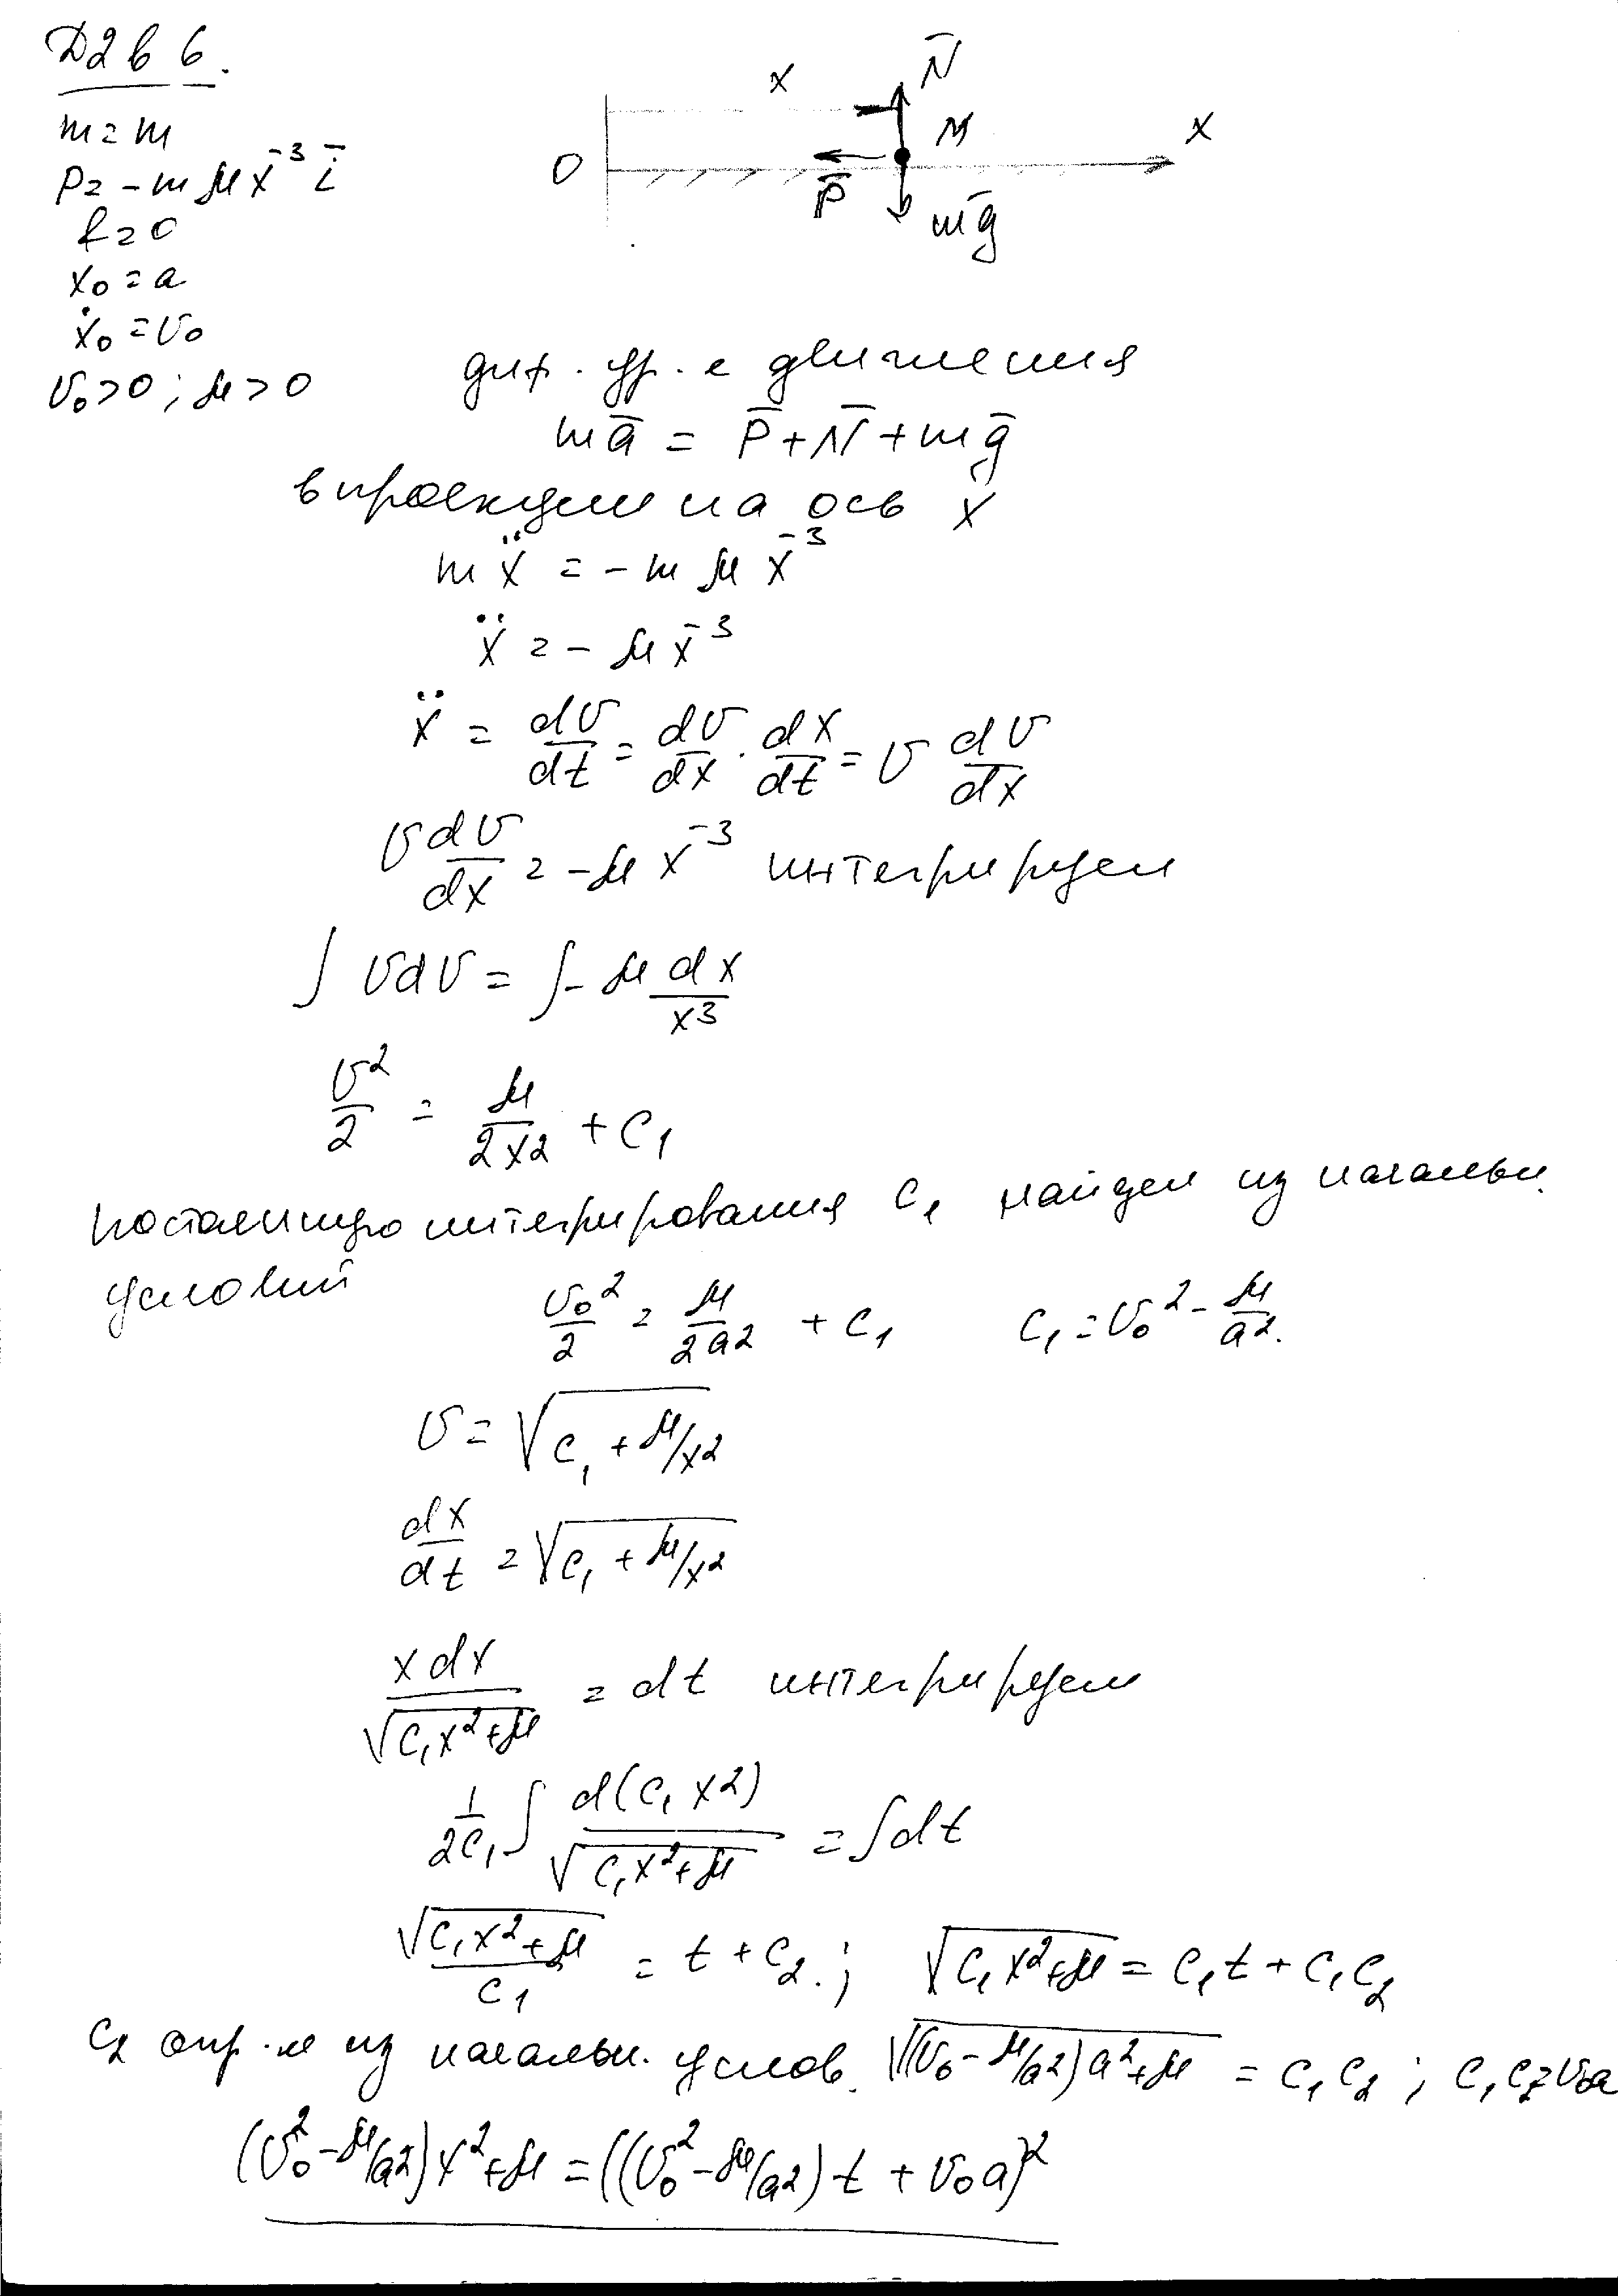 Д2 в 6.
m = m
P = -mμx⁻³ i̅
f = 0
x₀ = a
ẋ₀ = v₀
v₀ > 0; μ > 0
x
N̅
M
x
O
P̅
mg̅
диф. ур. е движения
ma̅ = P̅ + N̅ + mg̅
в проекции на ось x
mẍ = -mμx⁻³
ẍ = -μx⁻³
ẍ = dv/dt = dv/dx · dx/dt = v dv/dx
v dv/dx = -μx⁻³ интегрируем
∫ v dv = ∫ -μ dx/x³
v²/2 = μ/2x² + C₁
постоянную интегрирования C₁ найдем из начальн.
условий
v₀²/2 = μ/2a² + C₁ C₁ = v₀² - μ/a².
v = √(C₁ + μ/x²)
dx/dt = √(C₁ + μ/x²)
x dx/√(C₁x² + μ) = dt интегрируем
1/2C₁ ∫ d(C₁x²)/√(C₁x² + μ) = ∫dt
√(C₁x² + μ)/C₁ = t + C₂.; √(C₁x² + μ) = C₁t + C₁C₂
C₂ опр-м из начальн. услов. √((v₀ - μ/a²)a² + μ) = C₁C₂; C₁C₂ = v₀a
(v₀² - μ/a²)x² + μ = ((v₀² - μ/a²)t + v₀a)²